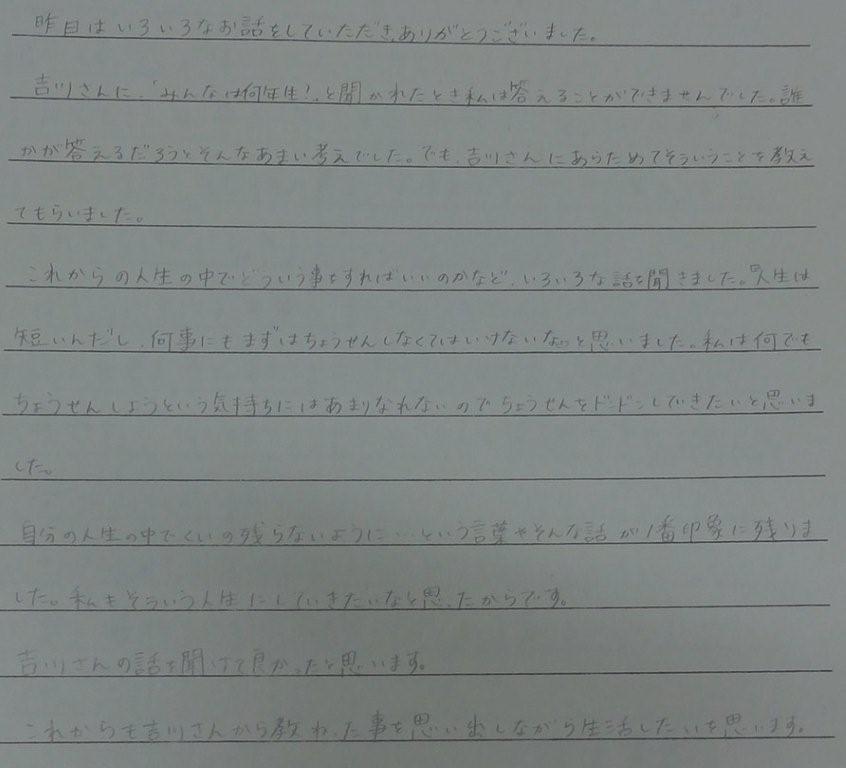 昨日はいろいろなお話をしていただき、ありがとうございました。
吉川さんに、「みんなは何年生!」と聞かれたとき私は答えることができませんでした。誰
かが答えるだろうとそんなあまい考えでした。でも、吉川さんにあらためてそういうことを教え
てもらいました。
これからの人生の中でどういう事をすればいいのかなど、いろいろな話を聞きました。『人生は
短いんだし、何事にもまずはちょうせんしなくてはいけないな。』と思いました。私は何でも
ちょうせんしようという気持ちにはあまりなれないのでちょうせんをドンドンしていきたいと思いま
した。
自分の人生の中でくいの残らないように…という言葉やそんな話が1番印象に残りま
した。私もそういう人生にしていきたいなと思ったからです。
吉川さんの話を聞けて良かったと思います。
これからも吉川さんから教わった事を思い出しながら生活したいを思います。